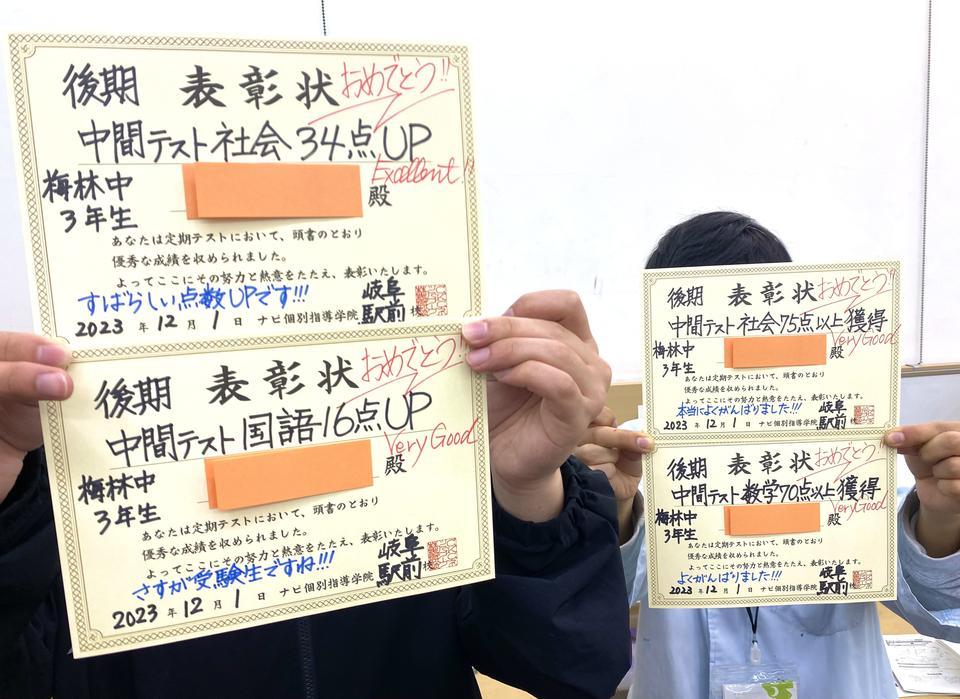 後期 表彰状 おめでとう!!
中間テスト社会34点UP
Excellent!!
梅林中
3年生
殿
あなたは定期テストにおいて、頭書のとおり
優秀な成績を収められました。
よってここにその努力と熱意をたたえ、表彰いたします。
すばらしい点数UPです!!!
2023年12月1日 ナビ個別指導学院 岐阜駅前校
後期 表彰状 おめでとう!!
中間テスト国語16点UP
Very Good
梅林中
3年生
殿
あなたは定期テストにおいて、頭書のとおり
優秀な成績を収められました。
よってここにその努力と熱意をたたえ、表彰いたします。
さすが受験生ですね!!!
2023年12月1日 ナビ個別指導学院 岐阜駅前校
後期 表彰状 おめでとう!!
中間テスト社会75点以上獲得
Very Good
梅林中
3年生
殿
あなたは定期テストにおいて、頭書のとおり
優秀な成績を収められました。
よってここにその努力と熱意をたたえ、表彰いたします。
本当によくがんばりました!!!
2023年12月1日 ナビ個別指導学院 岐阜駅前校
後期 表彰状 おめでとう!!
中間テスト数学70点以上獲得
Very Good
梅林中
3年生
殿
あなたは定期テストにおいて、頭書のとおり
優秀な成績を収められました。
よってここにその努力と熱意をたたえ、表彰いたします。
よくがんばりました!!!
2023年12月1日 ナビ個別指導学院 岐阜駅前校